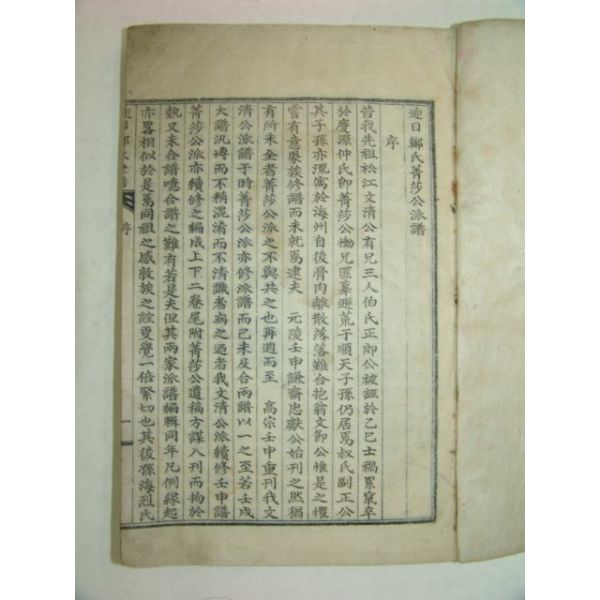 迎日鄭氏菁莎公派譜
序
昔我先祖松江文清公有兄三人伯氏正郞公被誣於乙巳士禍累竄卒
於慶源仲氏卽菁莎公慟兄匪辜遯荒于順天子孫仍居焉叔氏副正公
其子孫亦流寓於海州自後骨肉離散落落難合抱翁文節公惟是之懼
嘗有意裒族修譜而未就焉逮夫 元陵壬申謙齋忠獻公始刊之然猶
有所未全者菁莎公派之不與共之也再週而至 高宗壬申重刊我文
清公派譜于時菁莎公派亦修派譜而己未及合兩譜以一之至若壬戌
大譜汎博而不精混淆而不清識者病之迺者我文清公派續修壬申譜
菁莎公派亦續修之編成上下二卷尾附菁莎公遺稿方謀入刊而拘於
埶又未合譜噫合譜之難有若是夫但其兩家派譜編輯同年凡例緣起
亦畧相似於是焉同祖之感敦族之誼更覺一倍緊切也其後孫海烈氏